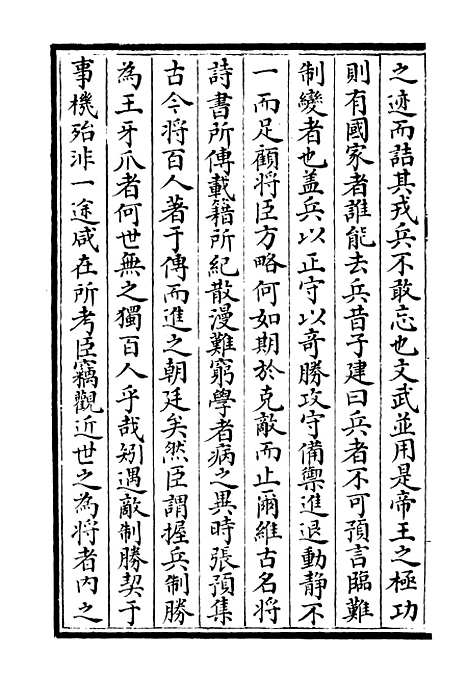 之迹而詰其戎兵不敢忘也文武並用是帝王之極功
則有國家者誰能去兵昔子建曰兵者不可預言臨難
制變者也盖兵以正守以竒勝攻守備禦進退動静不
一而足顧將臣方略何如期於克敵而止爾維古名將
詩書所傳載籍所紀散漫難窮學者病之異時張預集
古今將百人著于傳而進之朝廷矣然臣謂握兵制勝
為王牙爪者何世無之獨百人乎哉矧遇敵制勝契于
事機殆非一途咸在所考臣竊觀近世之為將者内之